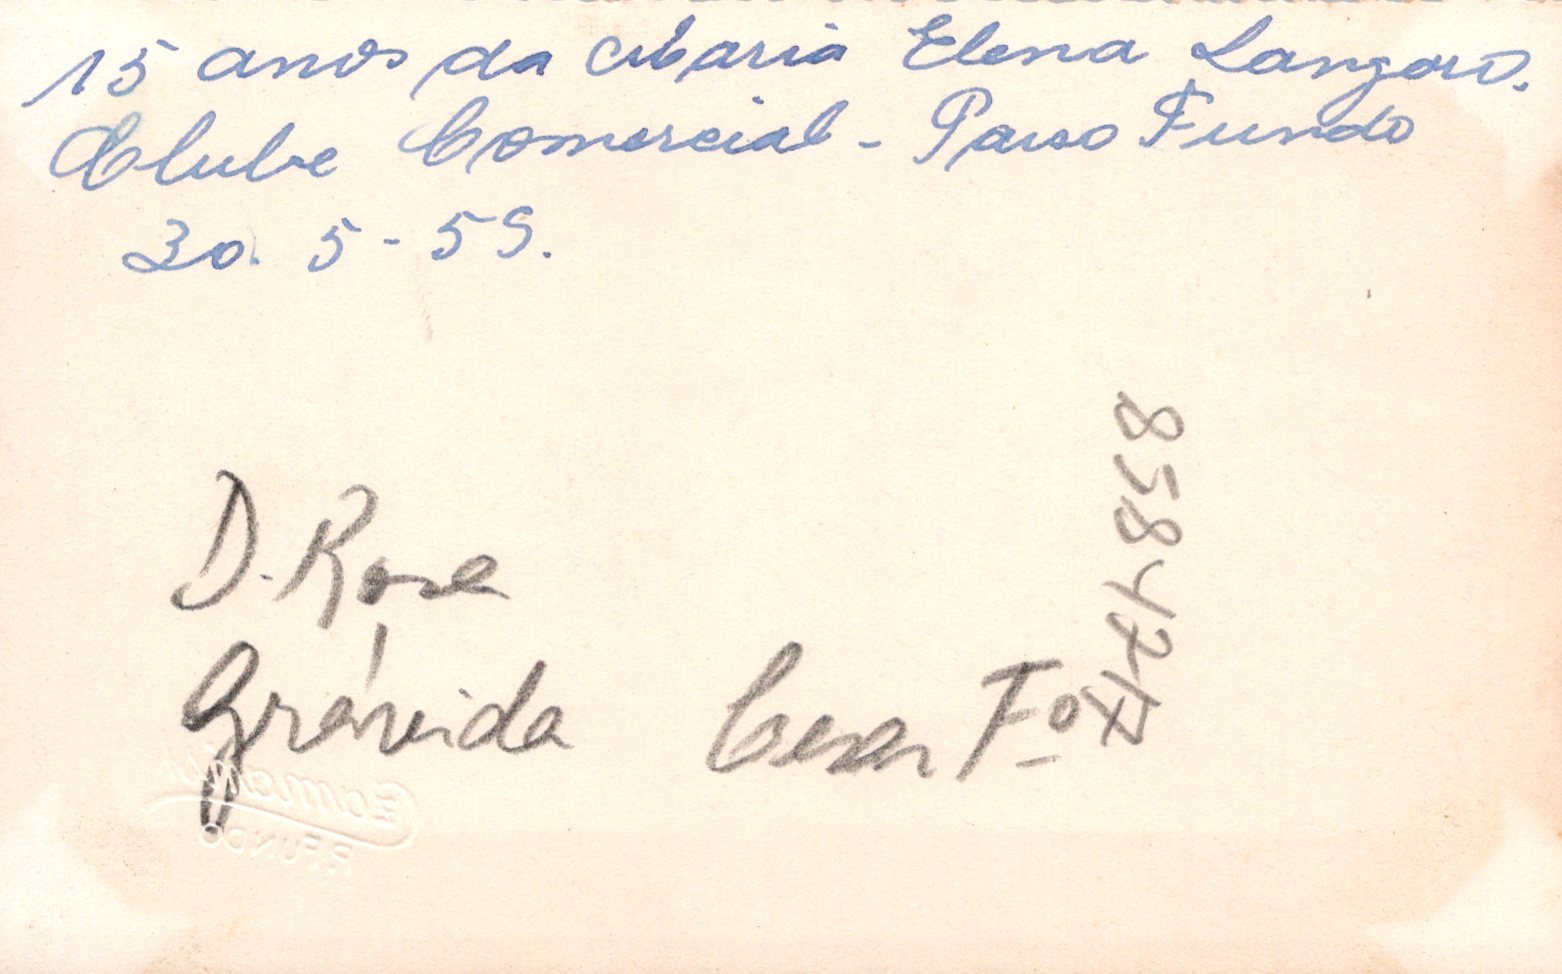 15 anos da Maria Elena Langaro.
Clube Comercial - Passo Fundo
30. 5 - 59.
D. Rosa
Grávida Cesar Fº
Czamanski
P. FUNDO